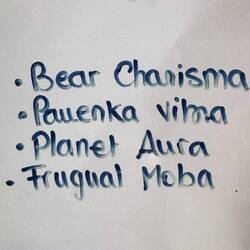 • Bear Charisma
• Pauenka Vilma
• Planet Aura
• Frugual Moba